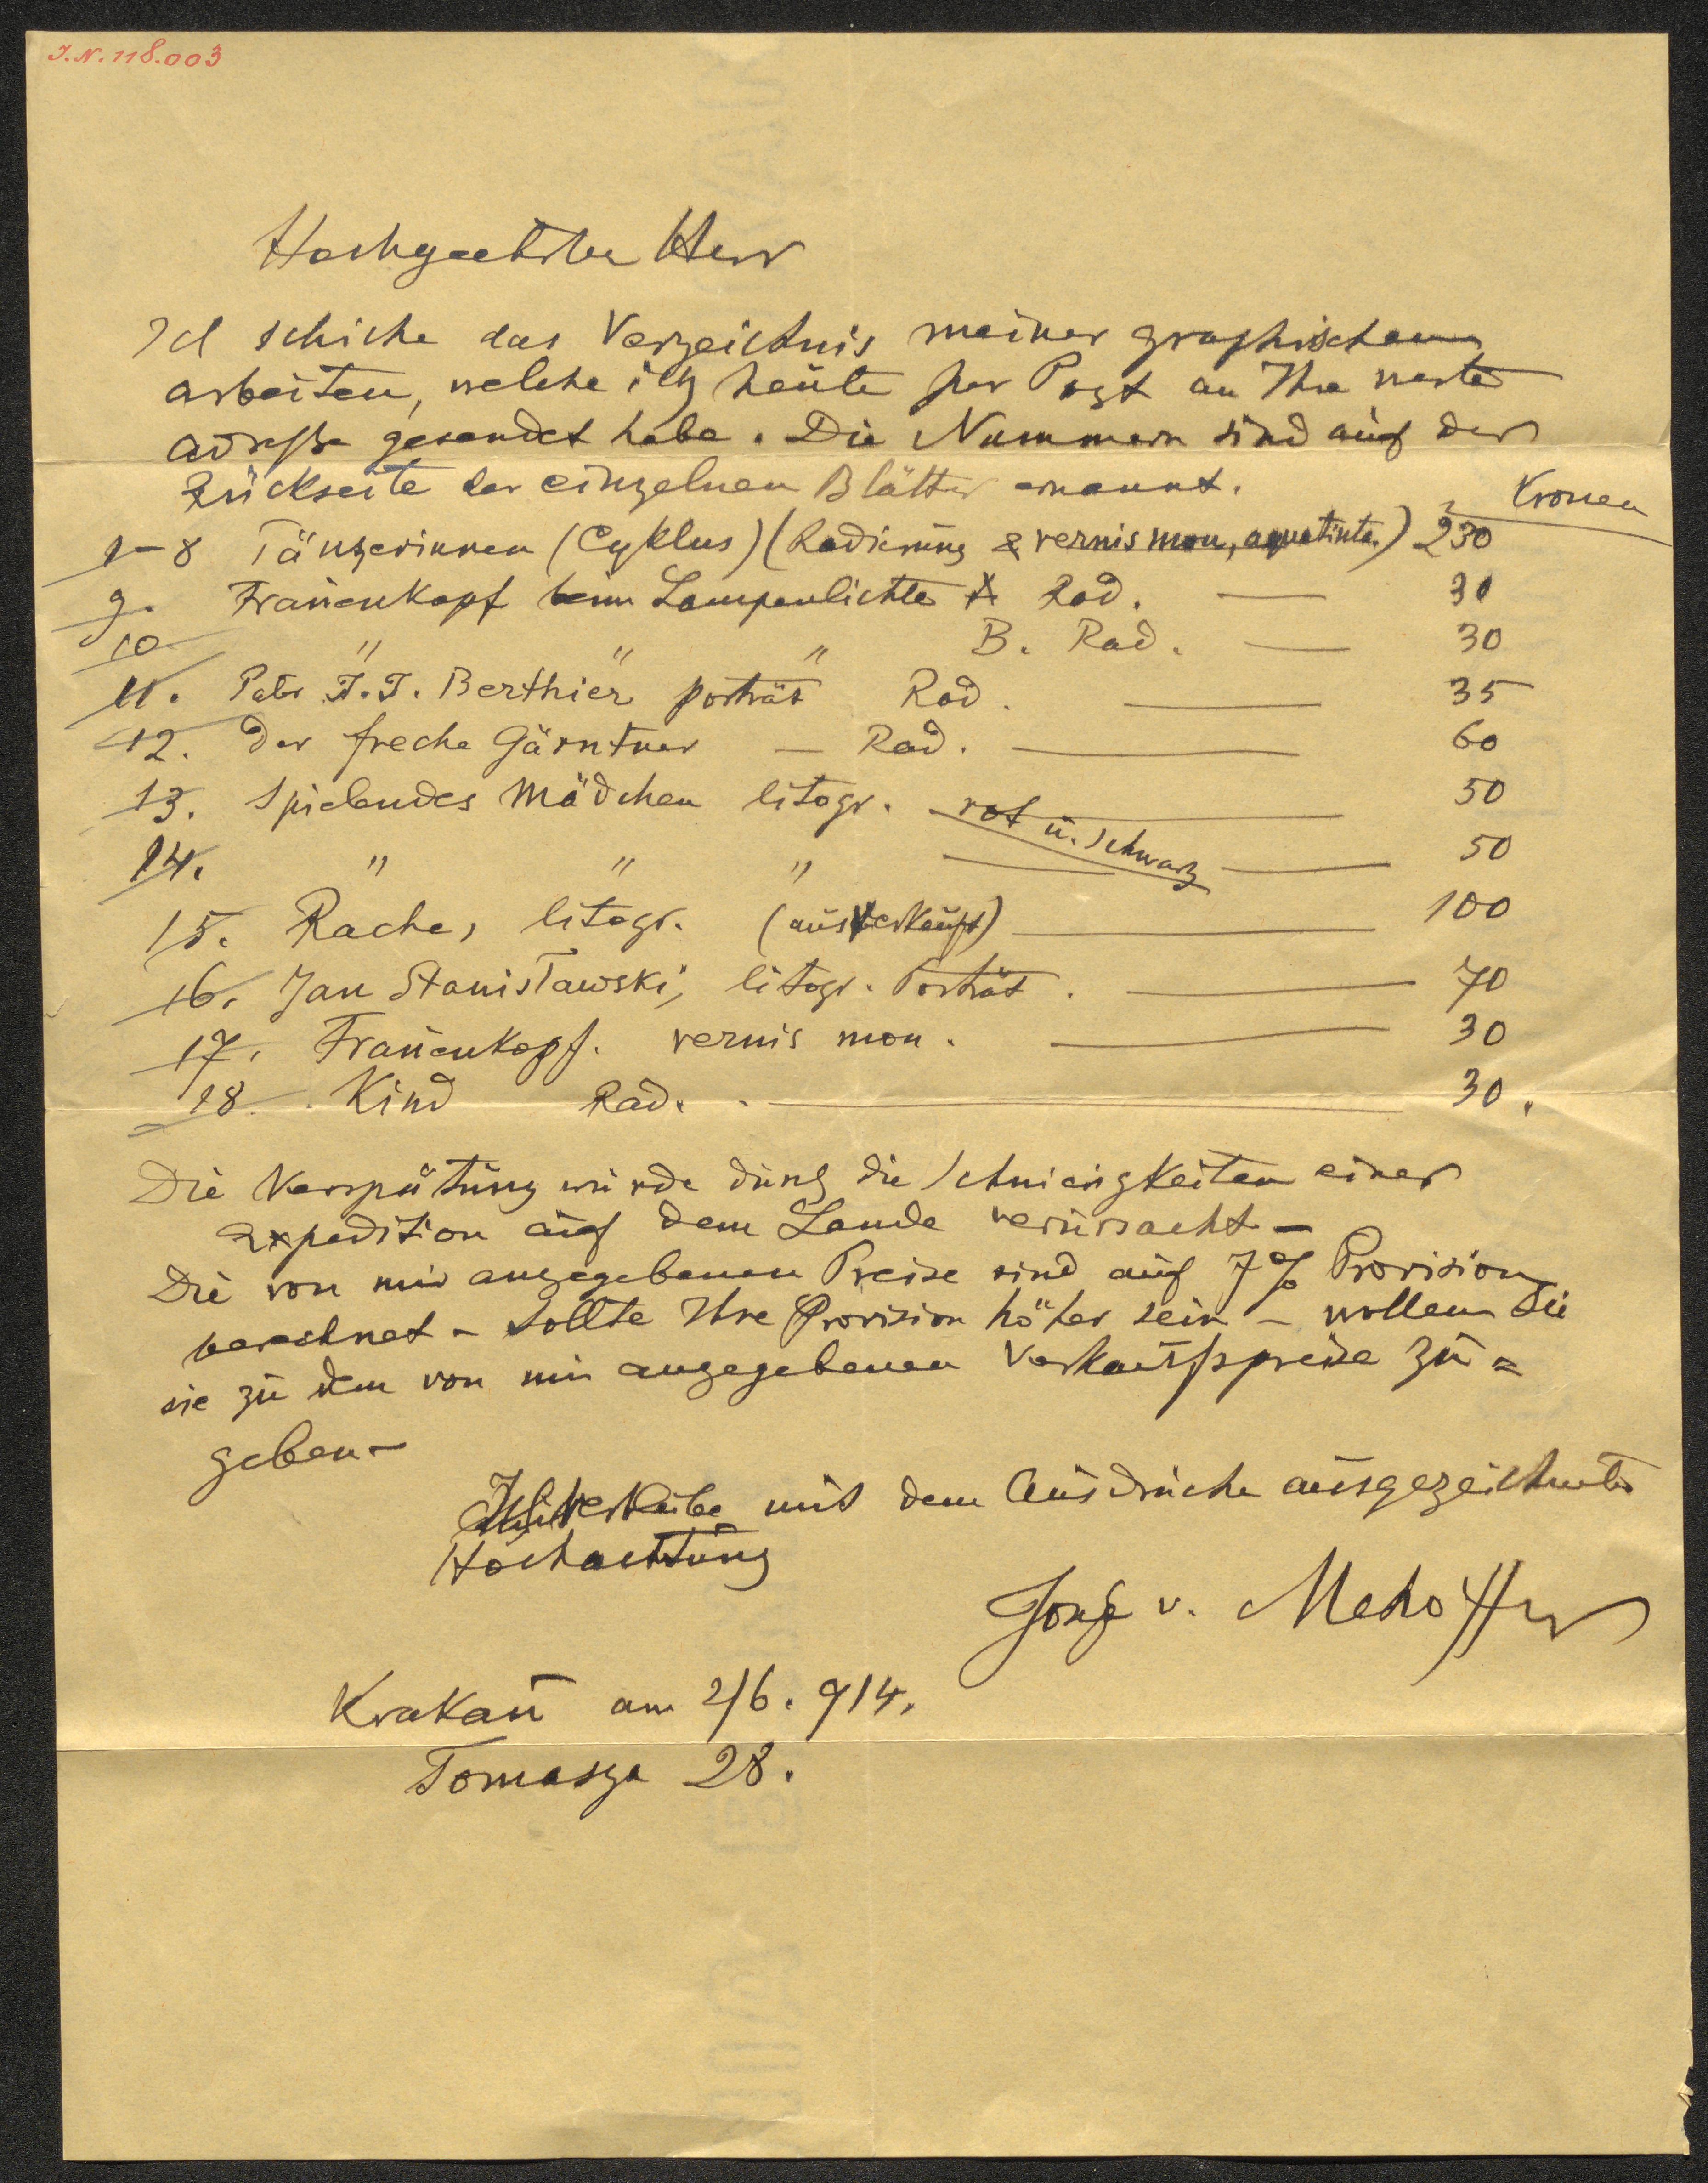 J.N. 118.003
Hochgeehrter Herr
Ich schicke das Verzeichnis meiner graphischen
arbeiten, welche ich heute per Post an Ihre werte
adreße gesendet habe. Die Nummern sind auf der
Rückseite der einzelnen Blätter ernannt.
Kronen
1-8 Tänzerinnen (Cyklus) (Radierung & vernis mou, aquatinta.) 230
9. Frauenkopf beim Lampenlichte A Rad. — 30
10 " " " B. Rad. — 30
11. Pater J.J. Berthier porträt Rad. — 35
12. Der freche Gärntner — Rad. — 60
13. Spielendes Mädchen litogr. — 50
rot u. schwarz
14. " " " — 50
15. Rache, litogr. (ausverkauft) — 100
16. Jan Stanisławski, litogr. Porträt. — 70
17. Frauenkopf. vernis mou. — 30
18. Kind Rad. — 30.
Die Verspätung wurde durch die Schwierigkeiten einer
Expedition auf dem Lande verursacht —
Die von mir angegebenen Preise sind auf 7% Provision
berechnet — Sollte Ihre Provision höher sein — wollen Sie
sie zu dem von mir angegebenen Verkaufspreise zu=
geben —
Ich verbleibe mit dem Ausdrucke ausgezeichneter
Hochachtung
Josef v. Mehoffer
Krakau am 2/6. 914.
Tomasza 28.